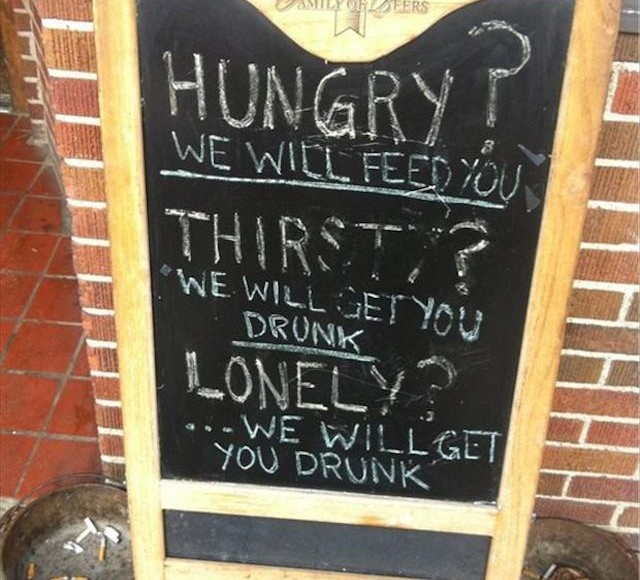 FAMILY OF BEERS
HUNGRY?
WE WILL FEED YOU
THIRSTY?
WE WILL GET YOU
DRUNK
LONELY?
...WE WILL GET
YOU DRUNK